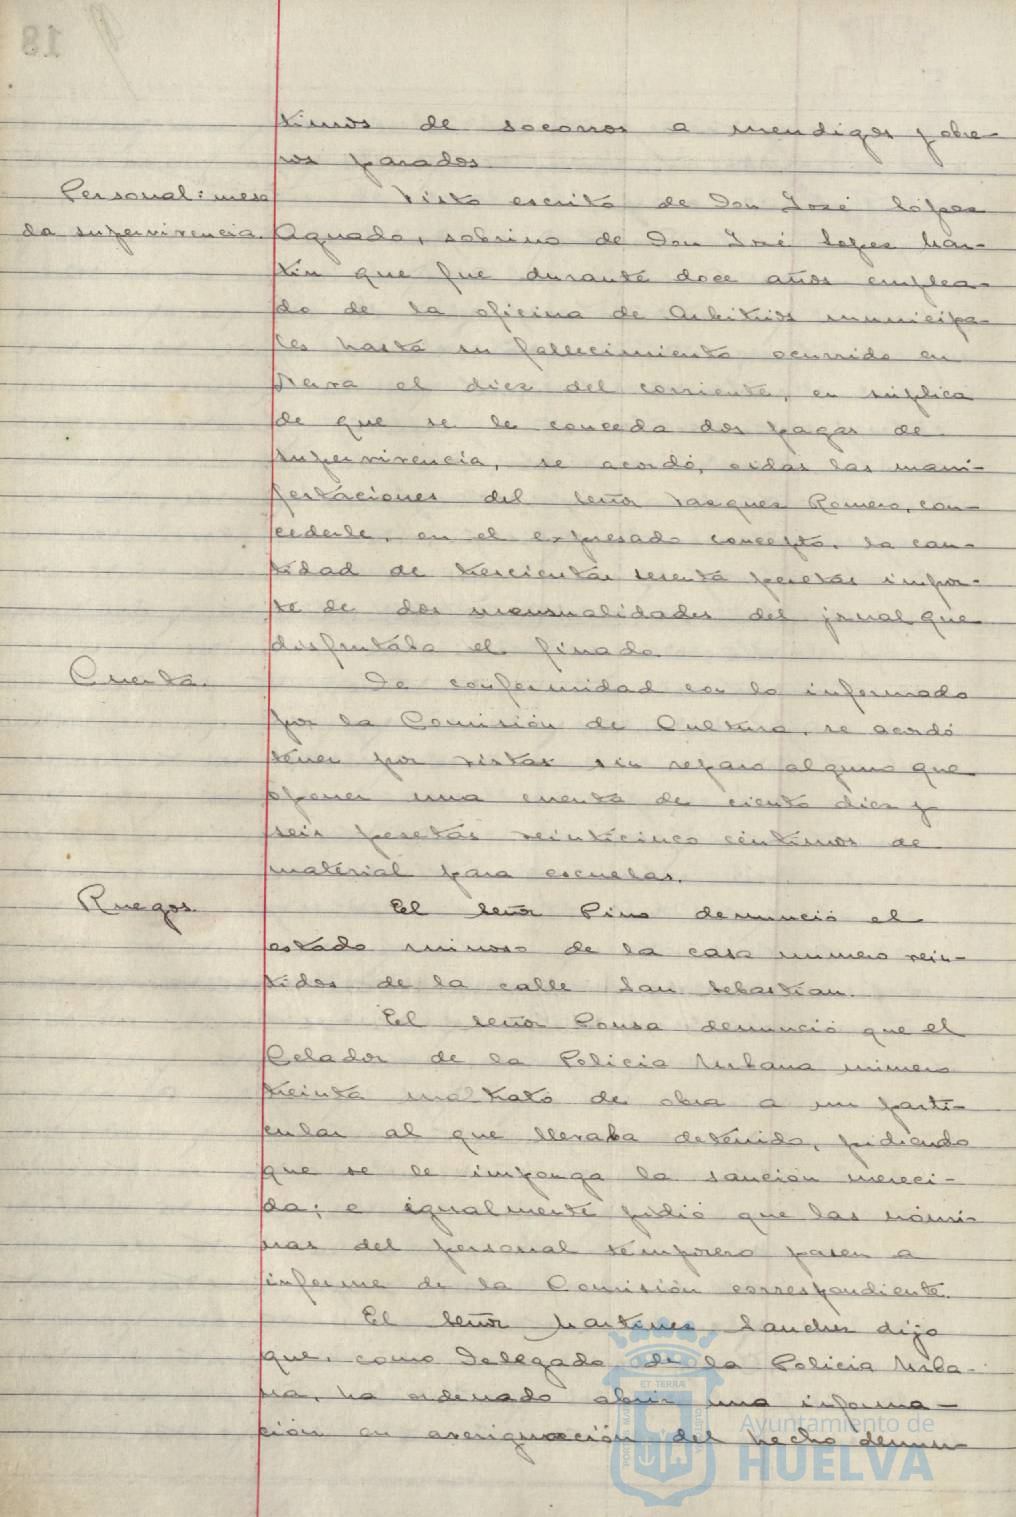 timos de socorros a mendigos y obre-
ros parados.
Personal: mesa
da supervivencia.
Visto escrito de Don José López
Aguado, sobrino de Don José Lopez Mar-
tin que fue durante doce años emplea-
do de la oficina de Arbitrios municipa-
les hasta su fallecimiento ocurrido en
el diez del corriente, en súplica
de que se le conceda dos pagas de
supervivencia, se acordó, oidas las mani-
festaciones del Señor Vazquez Romero, con-
cederle, en el expresado concepto, la can-
tidad de trescientas sesenta pesetas impor-
te de dos mensualidades del jornal que
disfrutaba el finado.
Cuenta.
De conformidad con lo informado
por la Comisión de Cultura, se acordó
tener por vistas sin reparo alguno que
oponer una cuenta de ciento diez y
seis pesetas veinticinco céntimos de
material para escuelas.
Ruegos.
El Señor Pino denunció el
estado ruinoso de la casa numero vein-
tidos de la calle San Sebastian.
El Señor Ponsa denunció que el
Celador de la Policia Urbana numero
treinta maltrató de obra a un parti-
cular al que llevaba detenido, pidiendo
que se le imponga la sanción mereci-
da; e igualmente pidió que las nómi-
nas del personal temporero pasen a
informe de la Comisión correspondiente.
El Señor Martinez Sanchez dijo
que, como Delegado de la Policia Urba-
na, ha ordenado abrir una informa-
ción en averiguación del hecho denun-
Ayuntamiento de
HUELVA
18